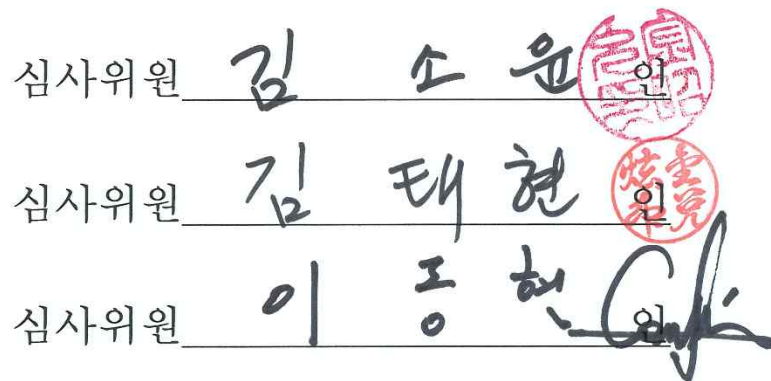 심사위원 김 소 윤 인
심사위원 김 태 현 인
심사위원 이 동 현 인